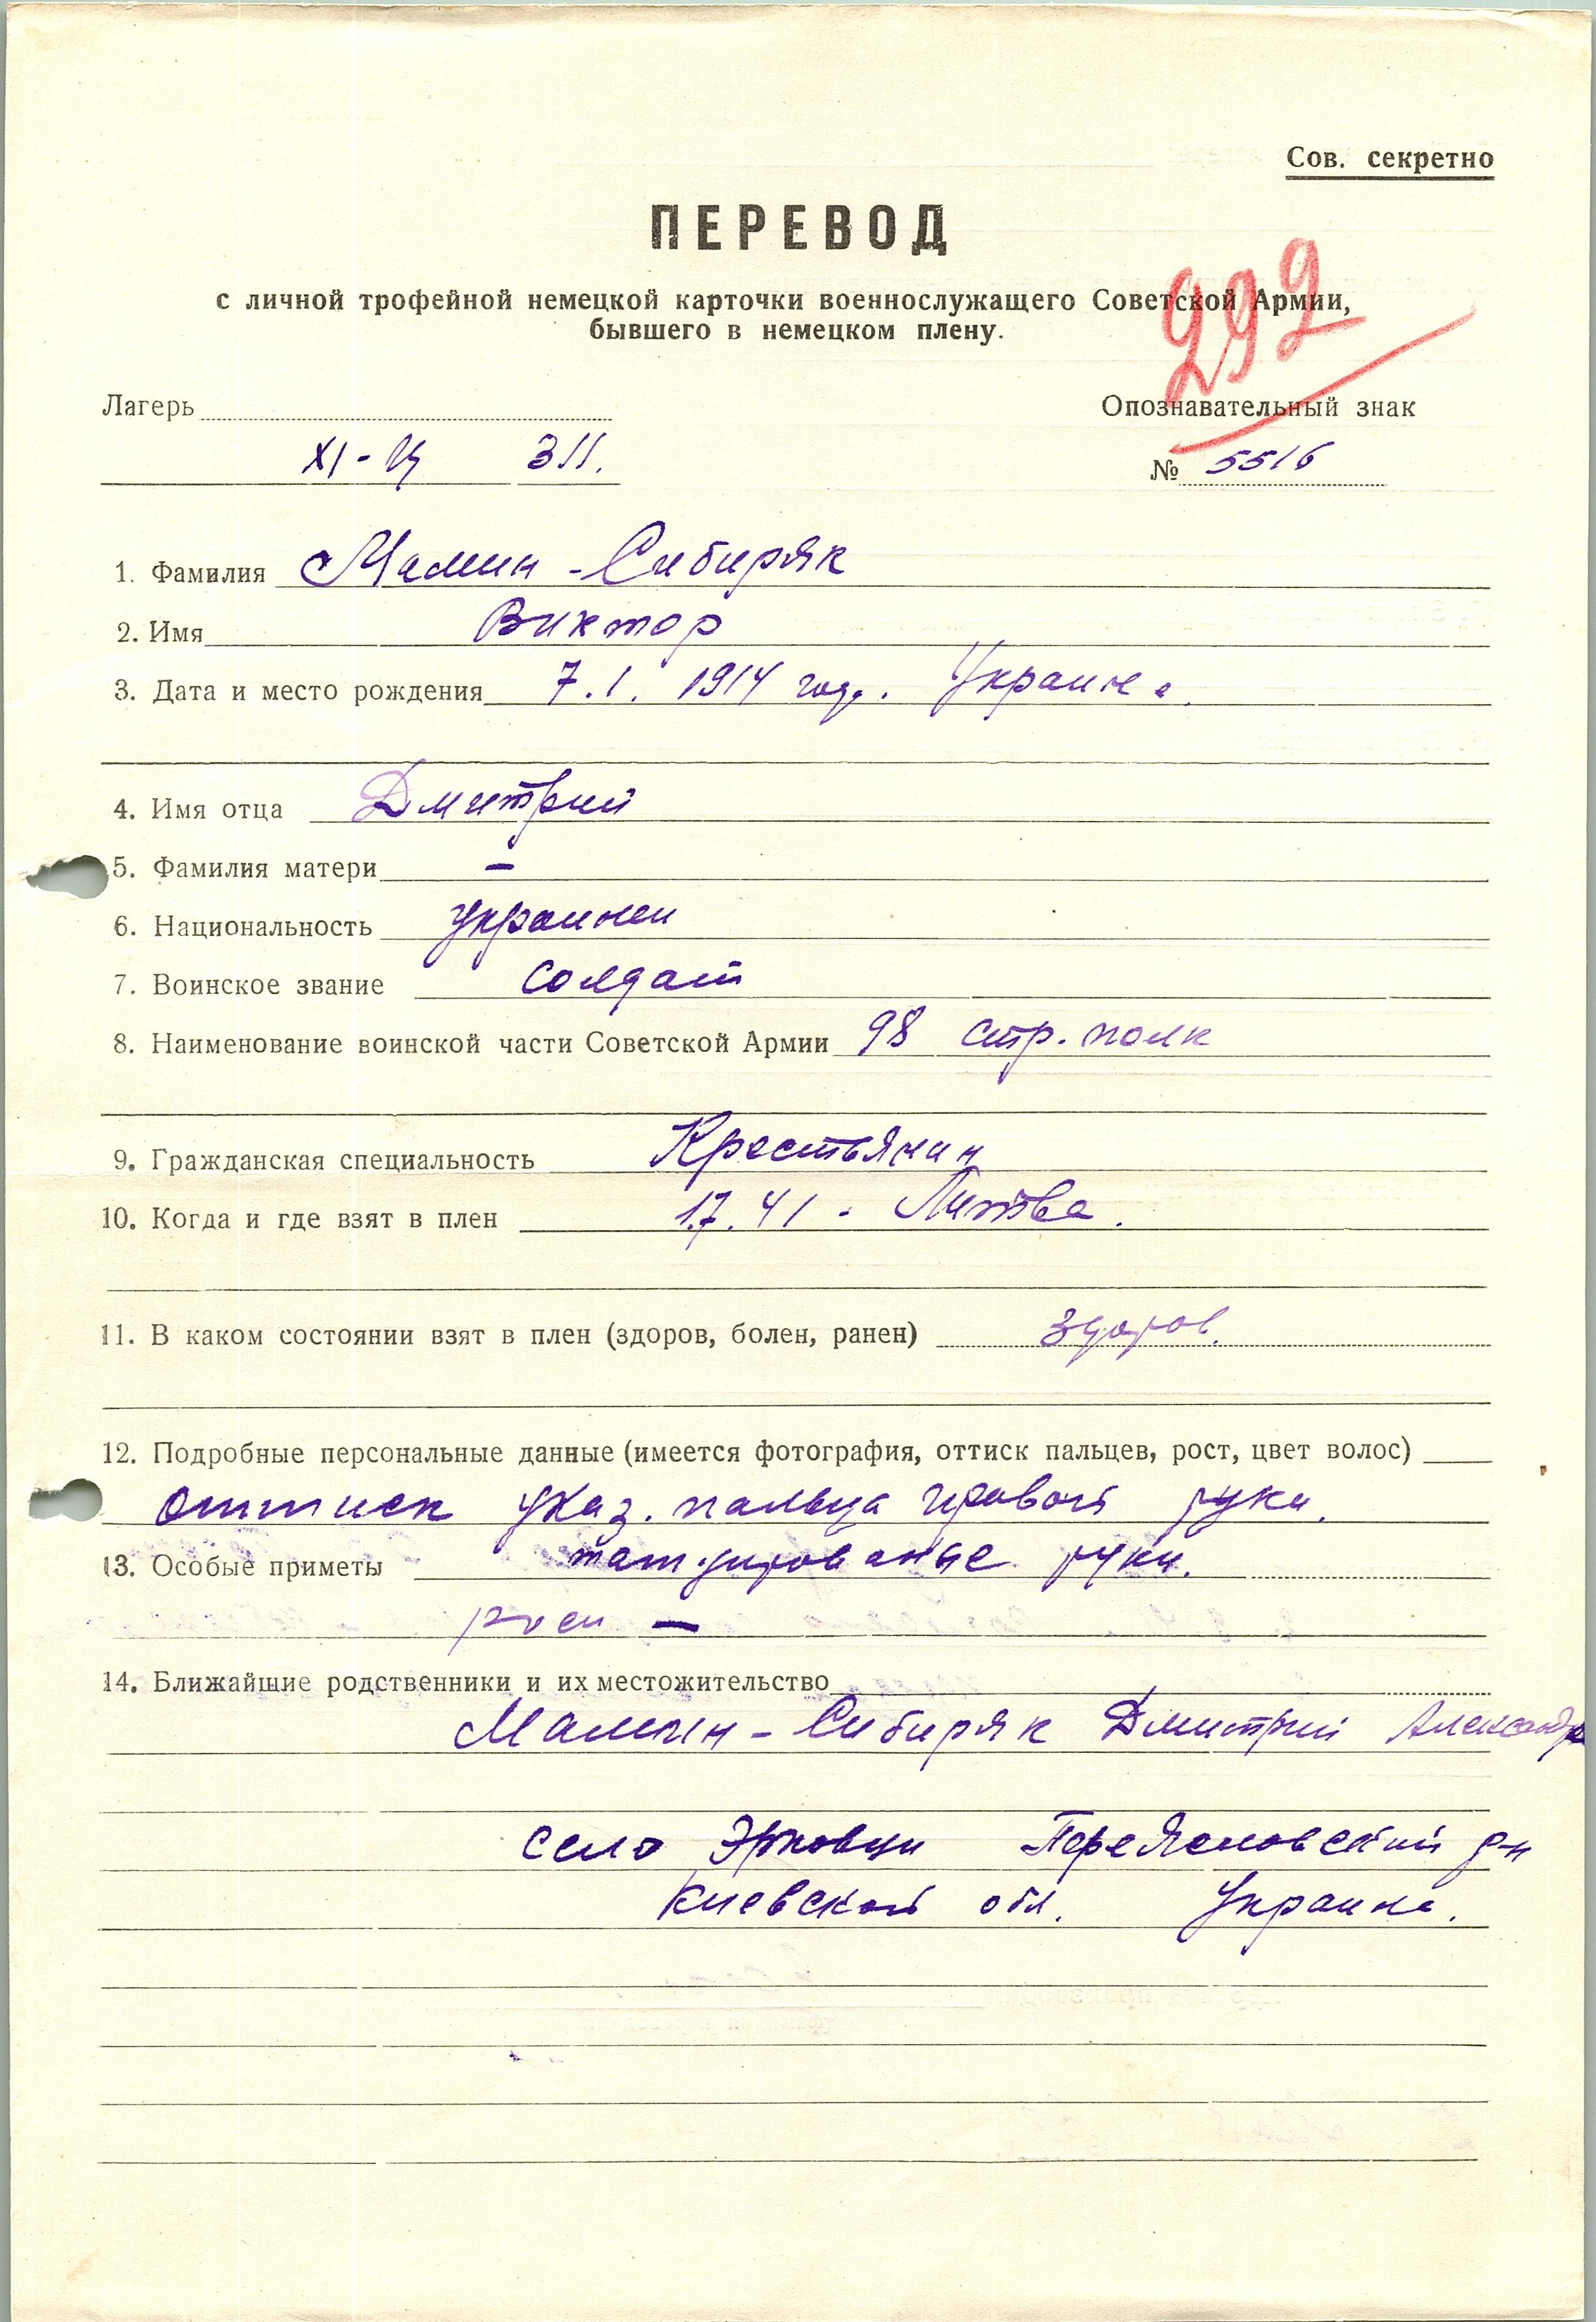 Сов. секретно
ПЕРЕВОД
с личной трофейной немецкой карточки военнослужащего Советской Армии,
бывшего в немецком плену.
292
Лагерь
Опознавательный знак
XI-Ц 311.
№ 5516
1. Фамилия Мамин-Сибиряк
2. Имя Виктор
3. Дата и место рождения 7.1. 1914 года. Украина.
4. Имя отца Дмитрий
5. Фамилия матери –
6. Национальность украинец
7. Воинское звание солдат
8. Наименование воинской части Советской Армии 98 стр. полк
9. Гражданская специальность Крестьянин
10. Когда и где взят в плен 1.7.41. Литва.
11. В каком состоянии взят в плен (здоров, болен, ранен) здоров.
12. Подробные персональные данные (имеется фотография, оттиск пальцев, рост, цвет волос)
оттиск указ. пальца правой руки.
13. Особые приметы татуированные руки.
–
14. Ближайшие родственники и их местожительство
Мамин-Сибиряк Дмитрий Александр
село Эрковци Переясловский р-н
Киевской обл. Украина.